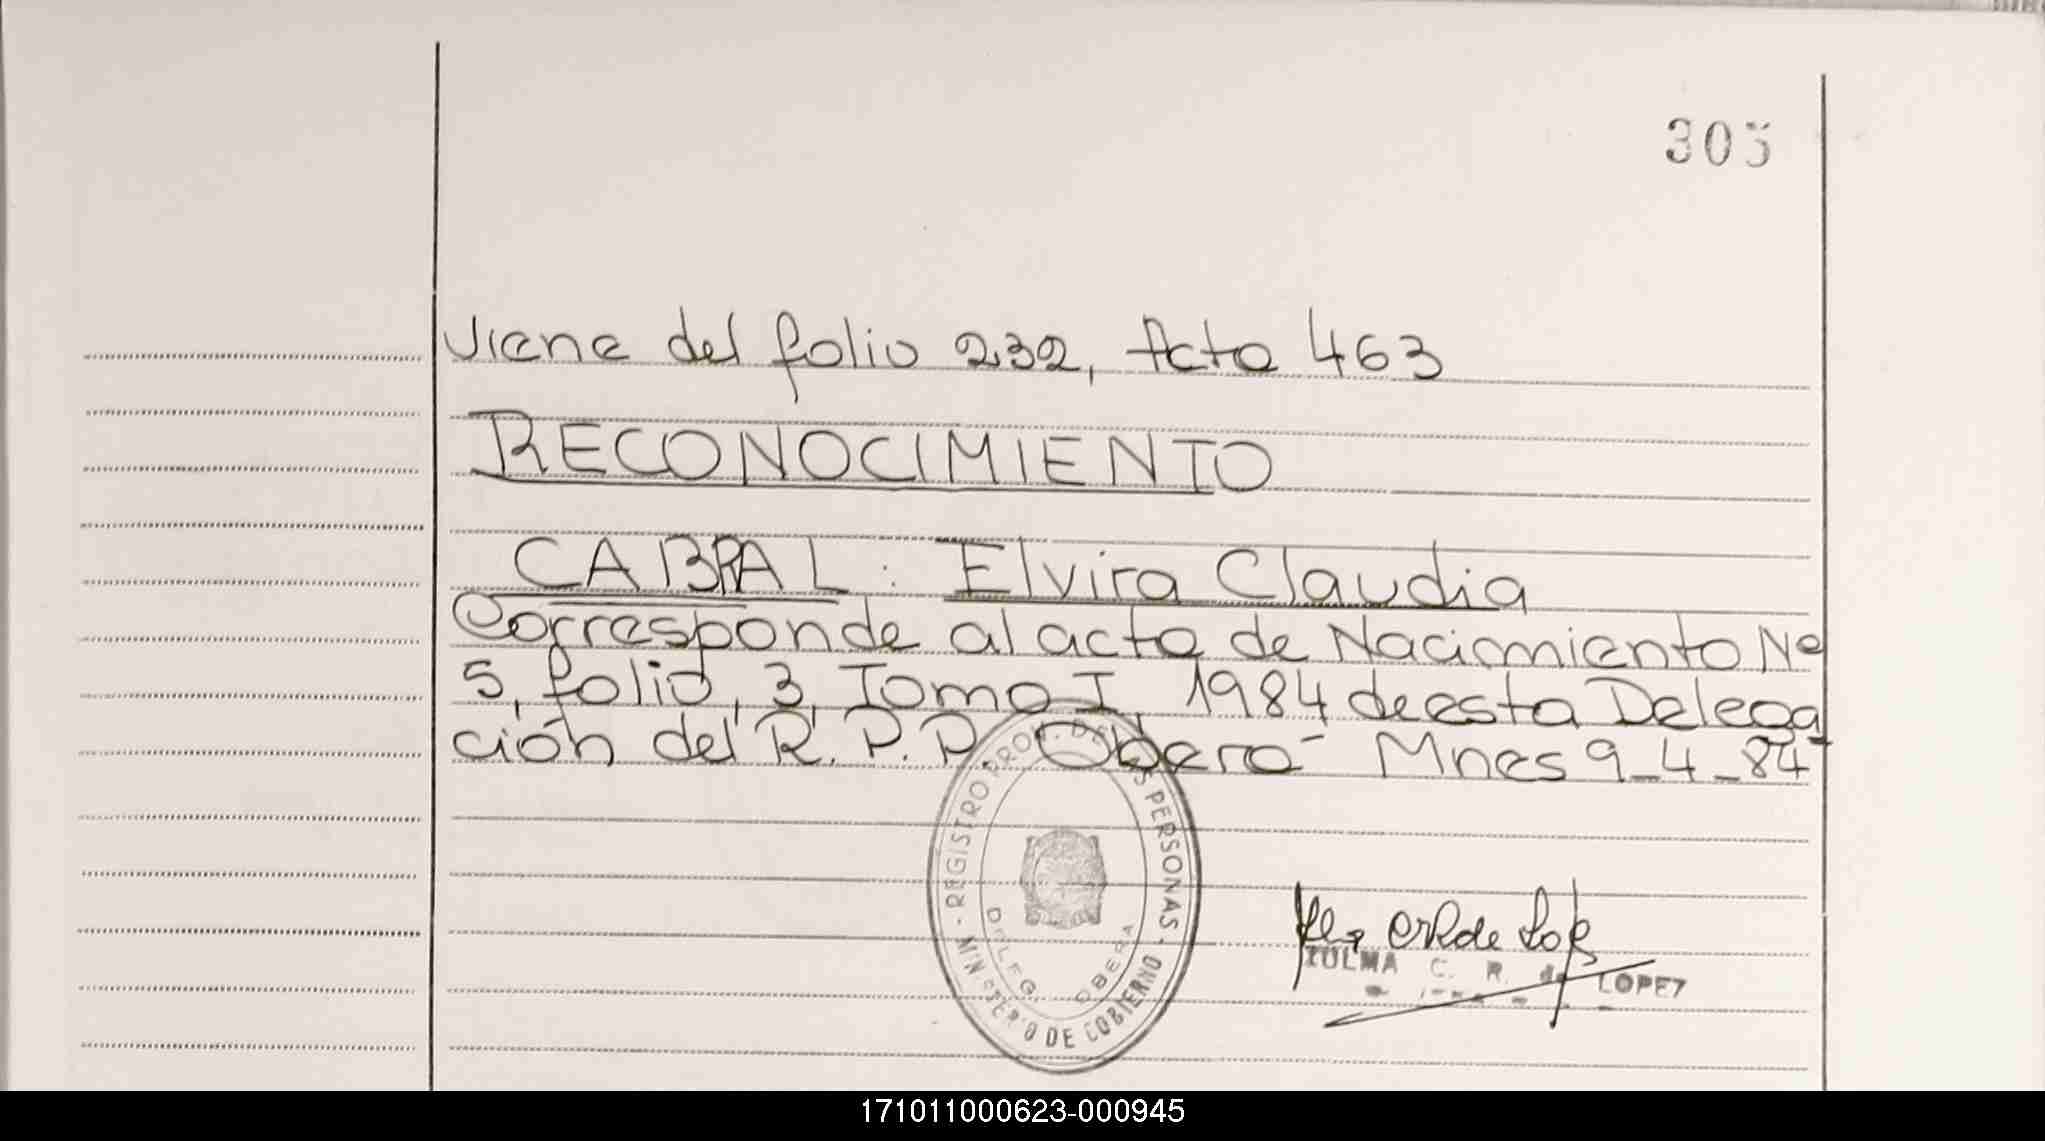 305
Viene del folio 232, Acta 463
RECONOCIMIENTO
CABRAL: Elvira Claudia
Corresponde al acta de Nacimiento Nº
5, folio, 3, Tomo I, 1984 de esta Delega
ción del R. P. P. Oberá- Mnes 9-4-84
- REGISTRO PROV. DE LAS PERSONAS -
MINISTERIO DE GOBIERNO
DELEG. OBERA
ZULMA C. R. de LOPEZ
171011000623-000945